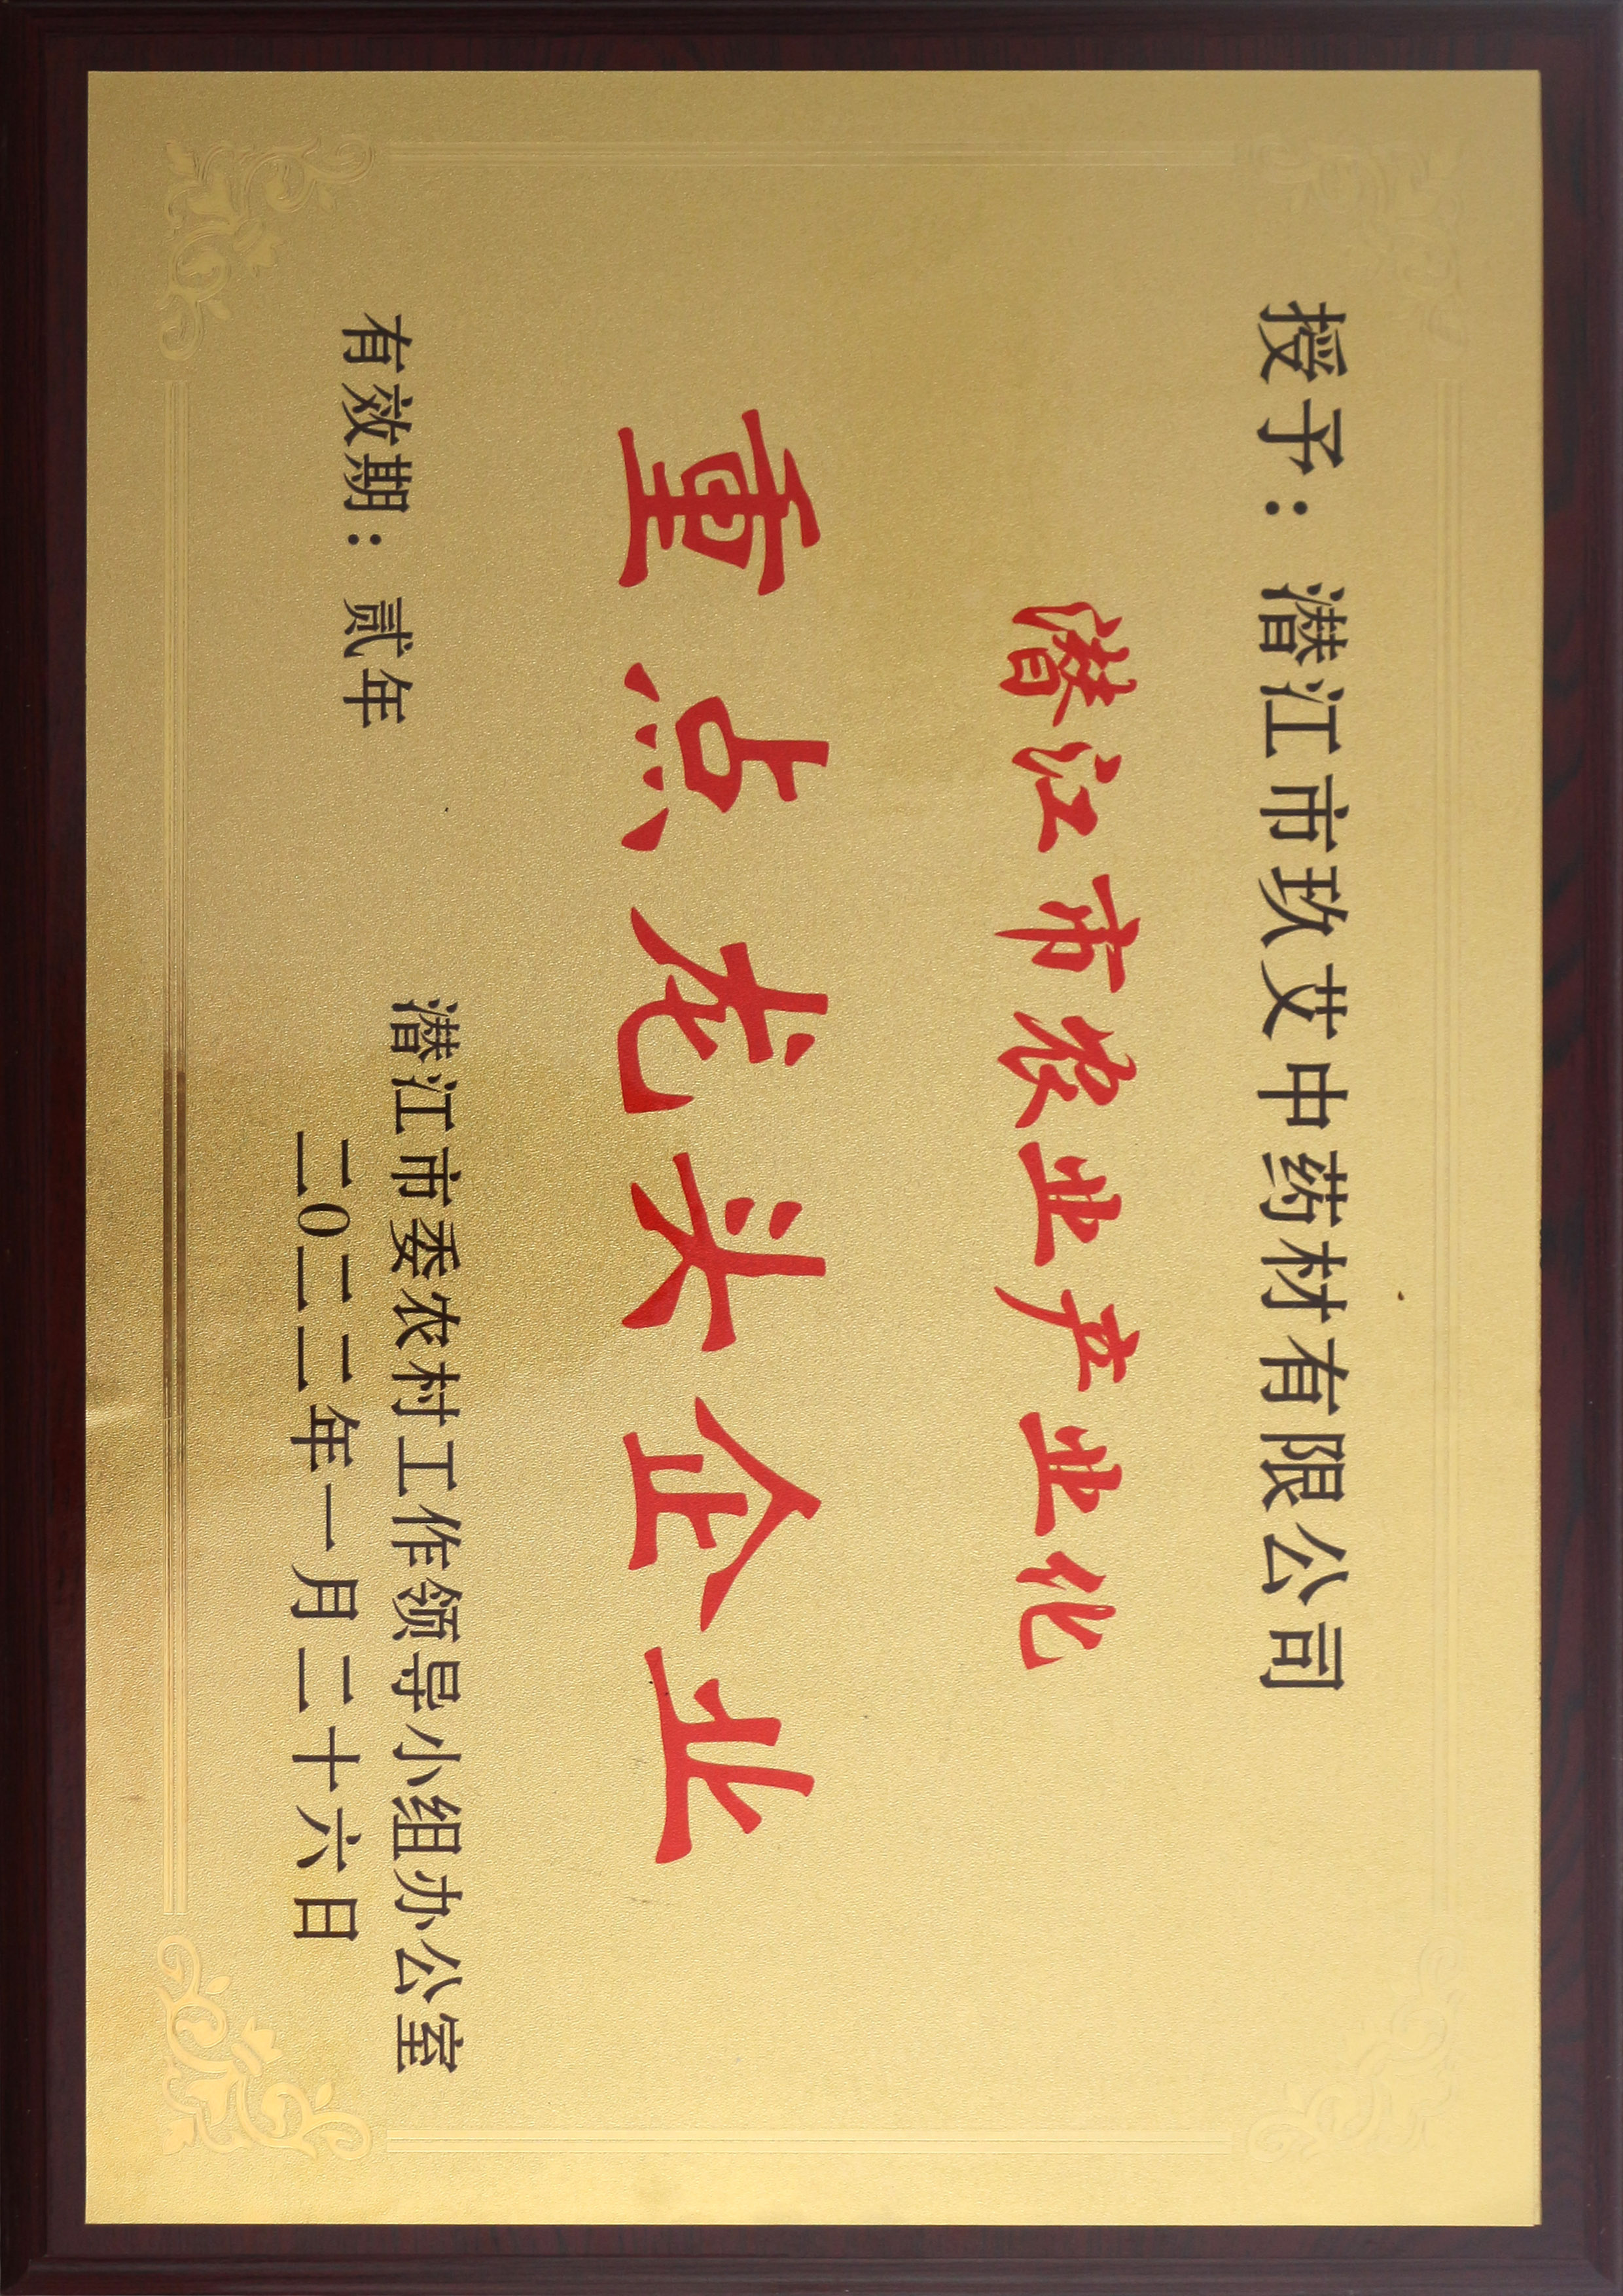 授予：潜江市玖艾中药材有限公司
潜江市农业产业化
重点龙头企业
潜江市委农村工作领导小组办公室
有效期：贰年
二0二二年一月二十六日